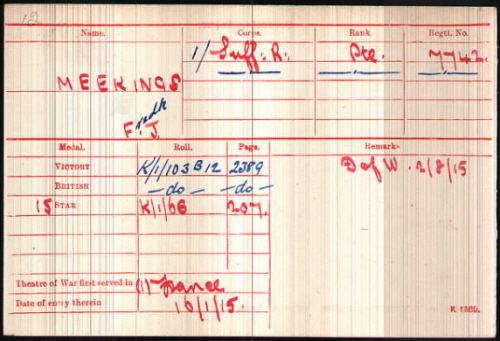 12
Name. Corps. Rank Regtl. No.
1/ Suff: R. Pte. 7742.
MEEKINGS
Fredk
F. J.
Medal. Roll. Page. Remarks
VICTORY K/1/103 B 12 2389 D of W. 2/8/15
BRITISH —do— —do—
15 STAR K/1/6B 207.
Theatre of War first served in (1) France
Date of entry therein 10/1/15.
K 1380.